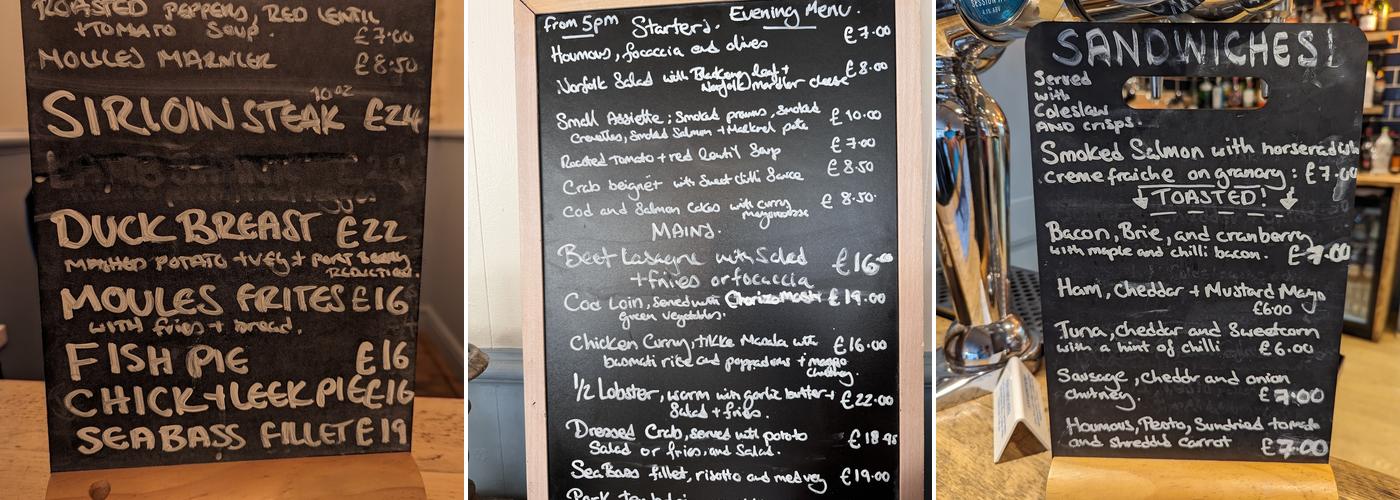 ROASTED PEPPERS, RED LENTIL
+TOMATO SOUP. £7.00
MOULES MARNIER £8.50
10oz
SIRLOIN STEAK £24
DUCK BREAST £22
MASHED POTATO + VEG + PORT BERRY
REDUCTION.
MOULES FRITES £16
WITH fries + bread.
FISH PIE £16
CHICK+LEEK PIE £16
SEABASS FILLET £19
From 5pm Starters. Evening Menu.
Houmous, focaccia and olives £7.00
Norfolk Salad with £8.00
Norfolk mardler cheese
Small Assiette; Smoked prawns, smoked £10.00
Crevettes, Smoked Salmon + Makrel pate
Roasted Tomato + red Lentil Soup £7.00
Crab beignet with Sweet Chilli Sauce £8.50
Cod and Salmon Cakes with curry £8.50.
mayonnaise
MAINS.
Beef Lasagne with Salad £16
+fries or focaccia
Cod Loin, served with Chorizo mash £19.00
Green vegetables.
Chicken Curry, tikka Masala with £16.00
basmati rice and poppadoms + mango
chutney.
1/2 Lobster, warm with garlic butter + £22.00
Salad + fries.
Dressed Crab, served with potato £18.95
Salad or fries and Salad.
SeaBass fillet, risotto and med veg £19.00
Pork
SANDWICHES!
Served
with
Coleslaw
AND crisps.
Smoked Salmon with horseradish
creme fraiche on granary: £7.00
TOASTED!
Bacon, Brie, and cranberry
with maple and chilli bacon. £7.00
Ham, Cheddar + Mustard Mayo
£6.00
Tuna, cheddar and Sweetcorn
with a hint of chilli £6.00
Sausage, cheddr and onion
chutney. £7.00
Houmous, Pesto, Sundried tomato
and shredded carrot £7.00